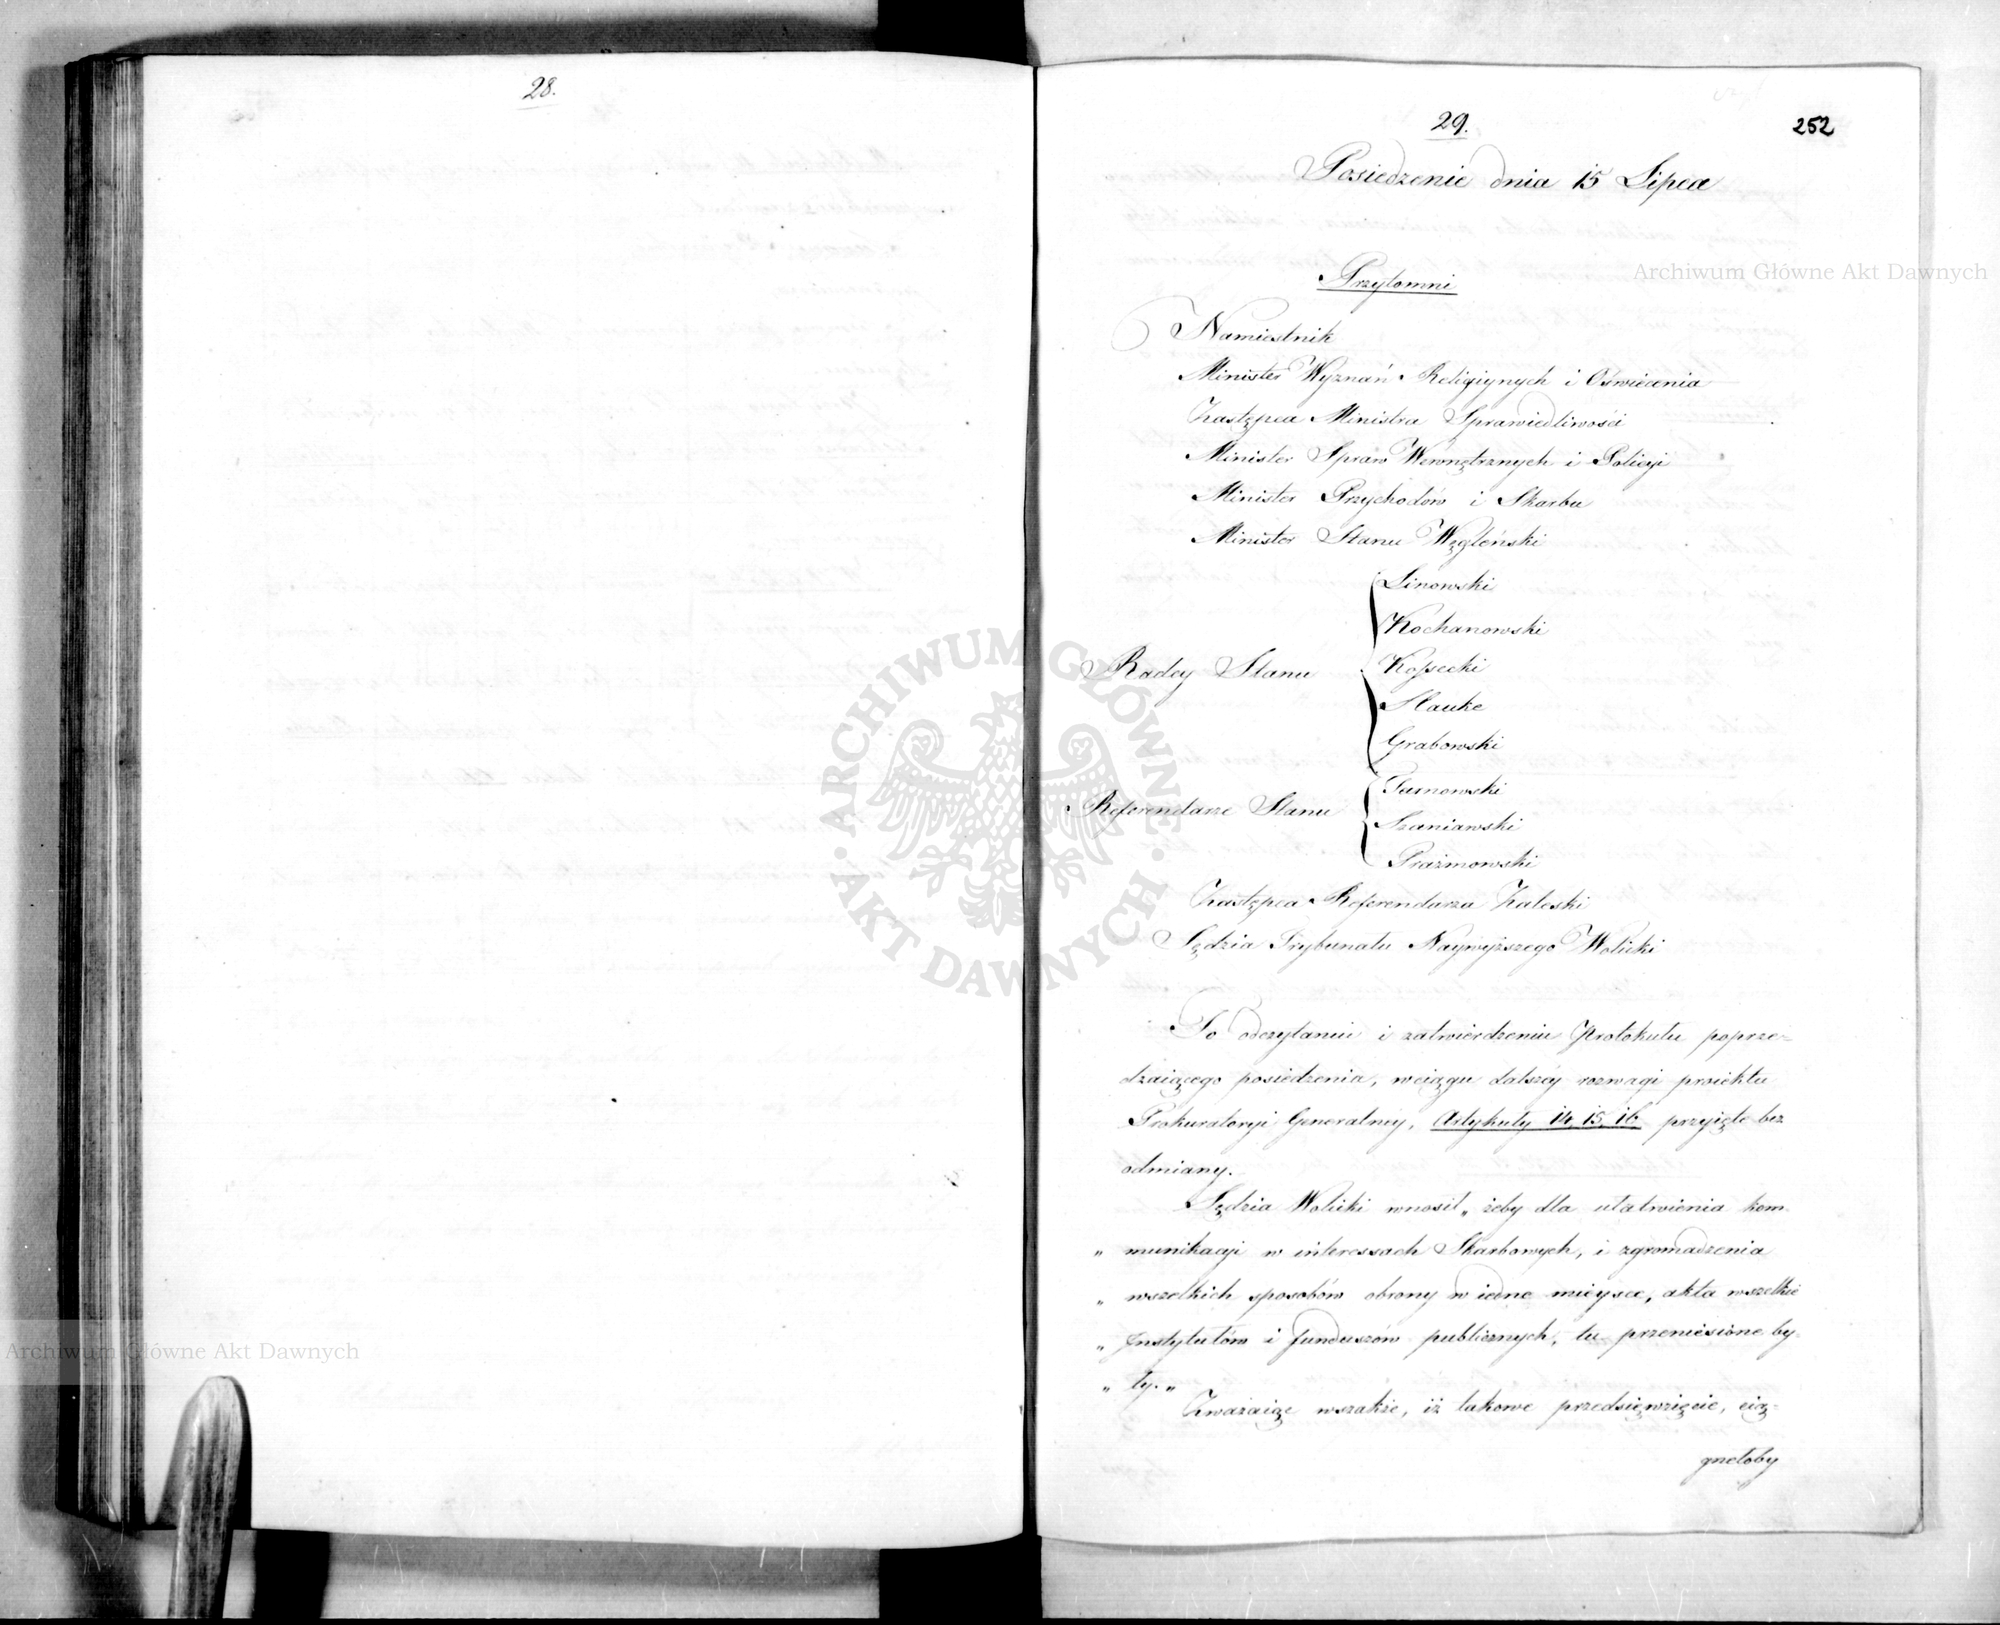 28.
29.
252
Posiedzenie dnia 15 Lipca
Przytomni
Namiestnik
Minister Wyznań Religiynych i Oświecenia
Zastępca Ministra Sprawiedliwości
Minister Spraw Wewnętrznych i Policyi
Minister Przychodów i Skarbu
Minister Stanu Węgleński
Radcy Stanu
Linowski
Kochanowski
Kossecki
Hauke
Grabowski
Referendarze Stanu
Tarnowski
Szaniawski
Prażmowski
Zastępca Referendarza Zaleski
Sędzia Trybunału Naywyższego Wolicki
Po odczytaniu i zatwierdzeniu Protokułu poprze-
dzaiącego posiedzenia, wciągu dalszéy rozwagi proiektu
Prokuratoryi Generalney, Artykuły 14, 15, 16 przyięte bez
odmiany.
Sędzia Wolicki wnosił „ żeby dla ułatwienia kom-
„ munikacyi w interessach Skarbowych, i zgromadzenia
„ wszelkich sposobów obrony w iedne mieysce, akta wszelkie
„ Instytutów i funduszów publicznych, tu przeniesione by-
„ ły. „
Zważaiąc wszakże, iż takowe przedsięwzięcie, cią-
gnełoby
Archiwum Główne Akt Dawnych
Archiwum Główne Akt Dawnych
ARCHIWUM GŁÓWNE · AKT DAWNYCH ·